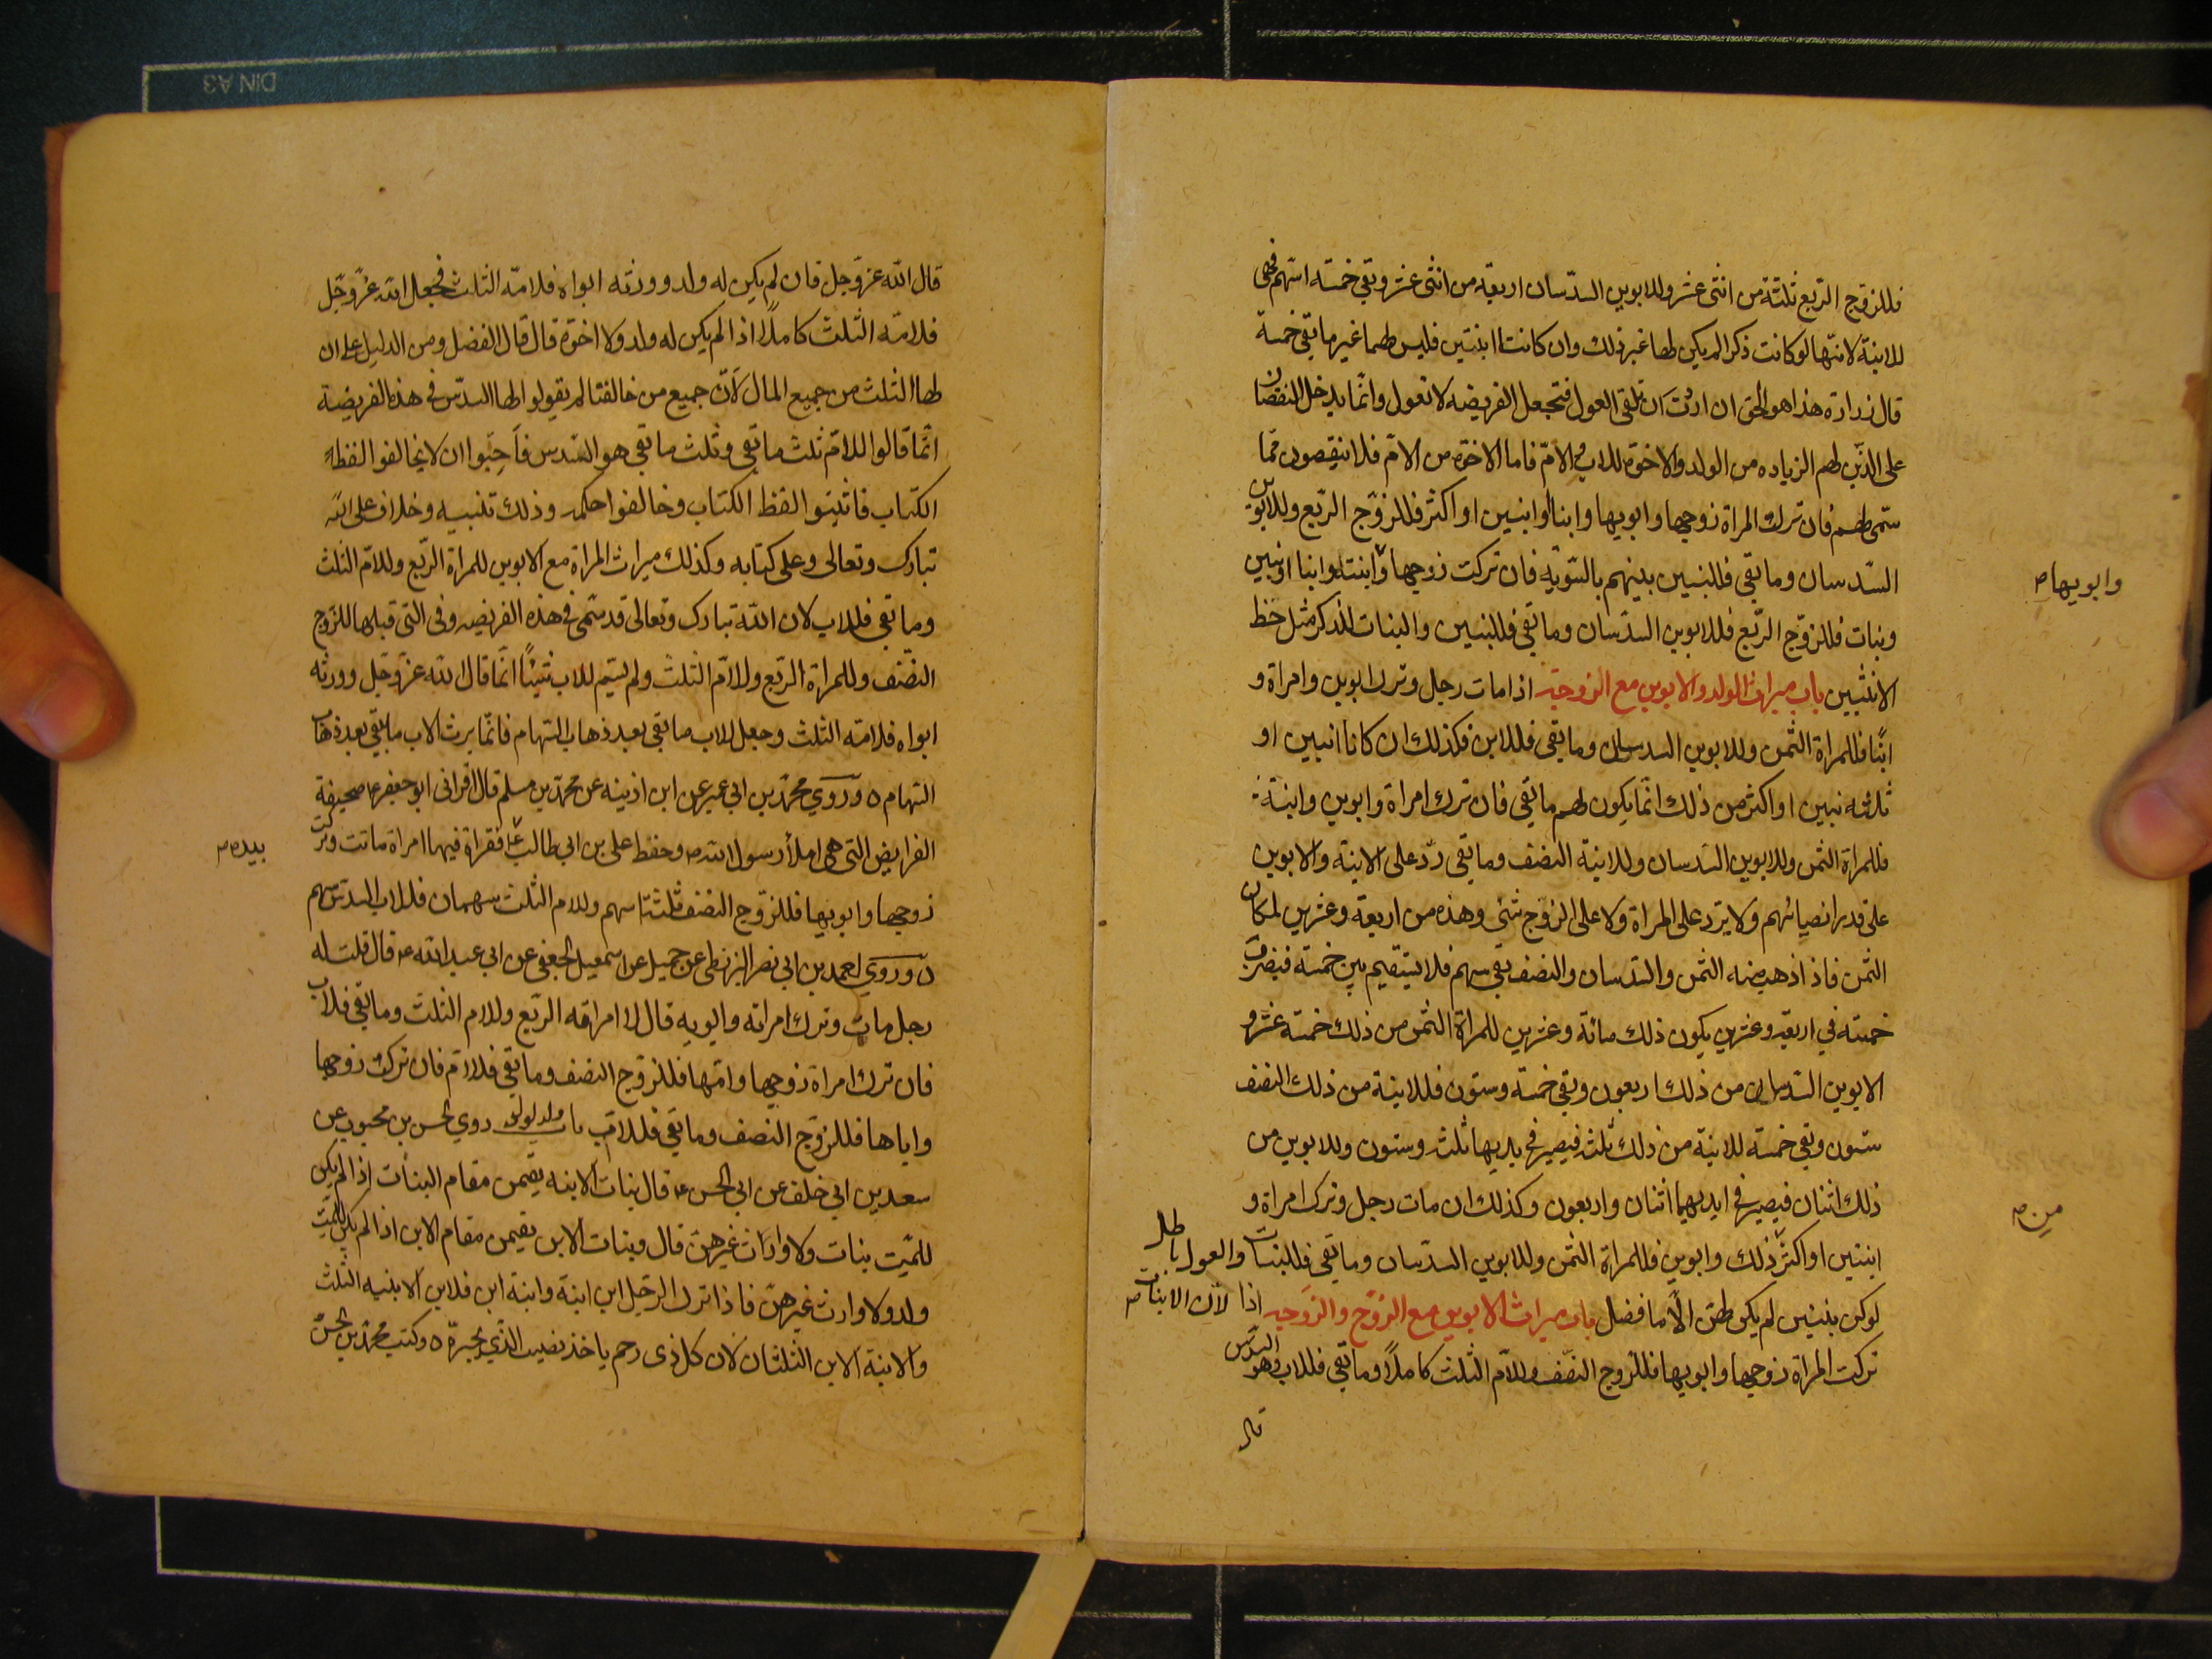 فللزوّج الرّبع ثلثة من اثنى عشر وللابوين السدّسان اربعة من اثنى عشر وبقى خمسة اسهم فهى
للابنة لانّها لو كانت ذكرا لم يكن لها غير ذلك وان كانت ابنتين فليس لهما غير ما بقى خمسة
قال زرارة هذا هو الحق ان اردت ان تلقى العول فتجعل الفريضه لا تعول وانّما يدخل النقصان
على الذّين لهم الزياده من الولد والاخوة للاب والامّ فاما الاخوة من الامّ فلا ينقصون ممّا
سمّى لهم فان ترك المراة زوجها وابويها وابنا وابنين او اكثر فللزوّج الرّبع وللابوين
السّدسان وما بقى فللبنين بينهم بالسّوية فان تركت زوجها وابنته وابنا او بنين
وابويها م
وبنات فللزوّج الرّبع فللابوين السدّسان وما بقى فللبنين والبنات للذكر مثل حظ
الانثيين باب ميراث الولد والابوين مع الزوجة اذا مات رجل وترك ابوين وامراة و
ابنًا فللمراة الثّمن وللابوين السدسان وما بقى فللابن فكذلك ان كانا ابنين او
ثلثه بنين او اكثر من ذلك انّما يكون لهم ما بقى فان ترك امراة وابوين وابنة
فللمراة الثمن وللابوين السّدسان وللابنة النصف وما بقى ردّ على الابنة والابوين
على قدر انصبائهم ولا يرد على المراة ولا على الزوّج شئ وهذه من اربعة وعشرين لمكان
الثمن فاذا ذهب منه الثمن والسّدسان والنصف بقى سهم فلا يستقيم بين خمسة فيضرب
خمسة في اربعة وعشرين يكون ذلك مائة وعشرين للمراة الثمن من ذلك خمسة عشر و
الابوين السّدسان من ذلك اربعون وبقى خمسة وستون فللابنة من ذلك النصف
ستون وبقى خمسة للابنة من ذلك ثلث فيصير في يديها ثلث وستون وللابوين من
ذلك اثنان فيصير في ايديهما اثنان واربعون وكذلك ان مات رجل وترك امراة و
من م
ابنتين او اكثر ذلك وابوين فللمراة الثمن وللابوين السدسان وما بقى فللبنات والعول باطل
لو كن بنين لم يكن لهن الّا ما فضل باب ميراث الابوين مع الزوّج والزوّجه اذا لان الابنات م
تركت المراة زوجها وابويها فللزوج النصّف وللامّ الثلث كاملاً وما بقى فللاب وهو السدس
قال
قال الله عزّ وجل فان لم يكن له ولد وورثه ابواه فلامّه الثلث فجعل الله عزّ وجّل
فلامّه الثلث كاملًا اذا لم يكن له ولد ولا اخوة قال قال الفضل ومن الدليل على ان
لها الثلث من جميع المال لانّ جميع من خالفنا لم يقولوا لها السدّس في هذه الفريضة
انّما قالوا للامّ ثلث ما بقى وثلث ما بقى هو السّدس فاحبّوا ان لا يخالفوا لفظ
الكتاب فاثبتوا لفظ الكتاب وخالفوا حكمه وذلك تلبيس وخلاف على الله
تبارك وتعالى وعلى كتابه وكذلك ميراث المراة مع الابوين للمراة الرّبع وللامّ الثلث
وما بقى فللاب لان اللّه تبارك وتعالى قد سمّى في هذه الفريضه وفى التى قبلها للزوج
النصّف وللمراة الرّبع وللامّ الثلث ولم يسم للاب شيئًا انّما قال الله عزّ وجّل وورثه
ابواه فلامّه الثلث وجعل للاب ما بقى بعد ذهاب السّهام فانّما يرث الاب ما يبقى بعد ذهاب
السّهام ه وروي محمّد بن ابى عمير عن ابن اذينه عن محمّد بن مسلم قال اقرانى ابو جعفر ع صحيفة
الفرايض التى هى املأ رسول الله ص وخط على بن ابى طالب ع فقراة فيها امراة ماتت وتركت
بيده م
زوجها وابويها فللزوّج النصف ثلثة اسهم وللام الثلث سهمان فللاب السدّس سهم
ه وروي احمد بن ابى نصر البزنطى عن جميل عن اسمعيل الجعفى عن ابى عبد الله ع قال قلت له
رجل مات وترك امراته وابويه قال لامراته الرّبع وللام الثلث وما بقى فللاب
فان ترك امراة زوجها وامّها فللزوّج النصف وما بقى فللامّ فان تركت زوجها
واباها فللزوّج النصف وما بقى فللاب باب ولد الولد روي الحسن بن محبوب عن
سعد بن ابى خلف عن ابى الحسن ع قال بنات الابنه يقمن مقام البنات اذا لم يكن
للميّت بنات ولا وارث غيرهنّ قال وبنات الابن يقمن مقام الابن اذا لم يكن للميّت
ولد ولا وارث غيرهنّ فاذا ترك الرّجل ابن ابنة وابنة ابن فلابن الابنه الثلث
والابنة الابن الثلثان لان كل ذى رحم ياخذ نصيب الذّي يجرّه ه وكتب محمّد بن الحسن